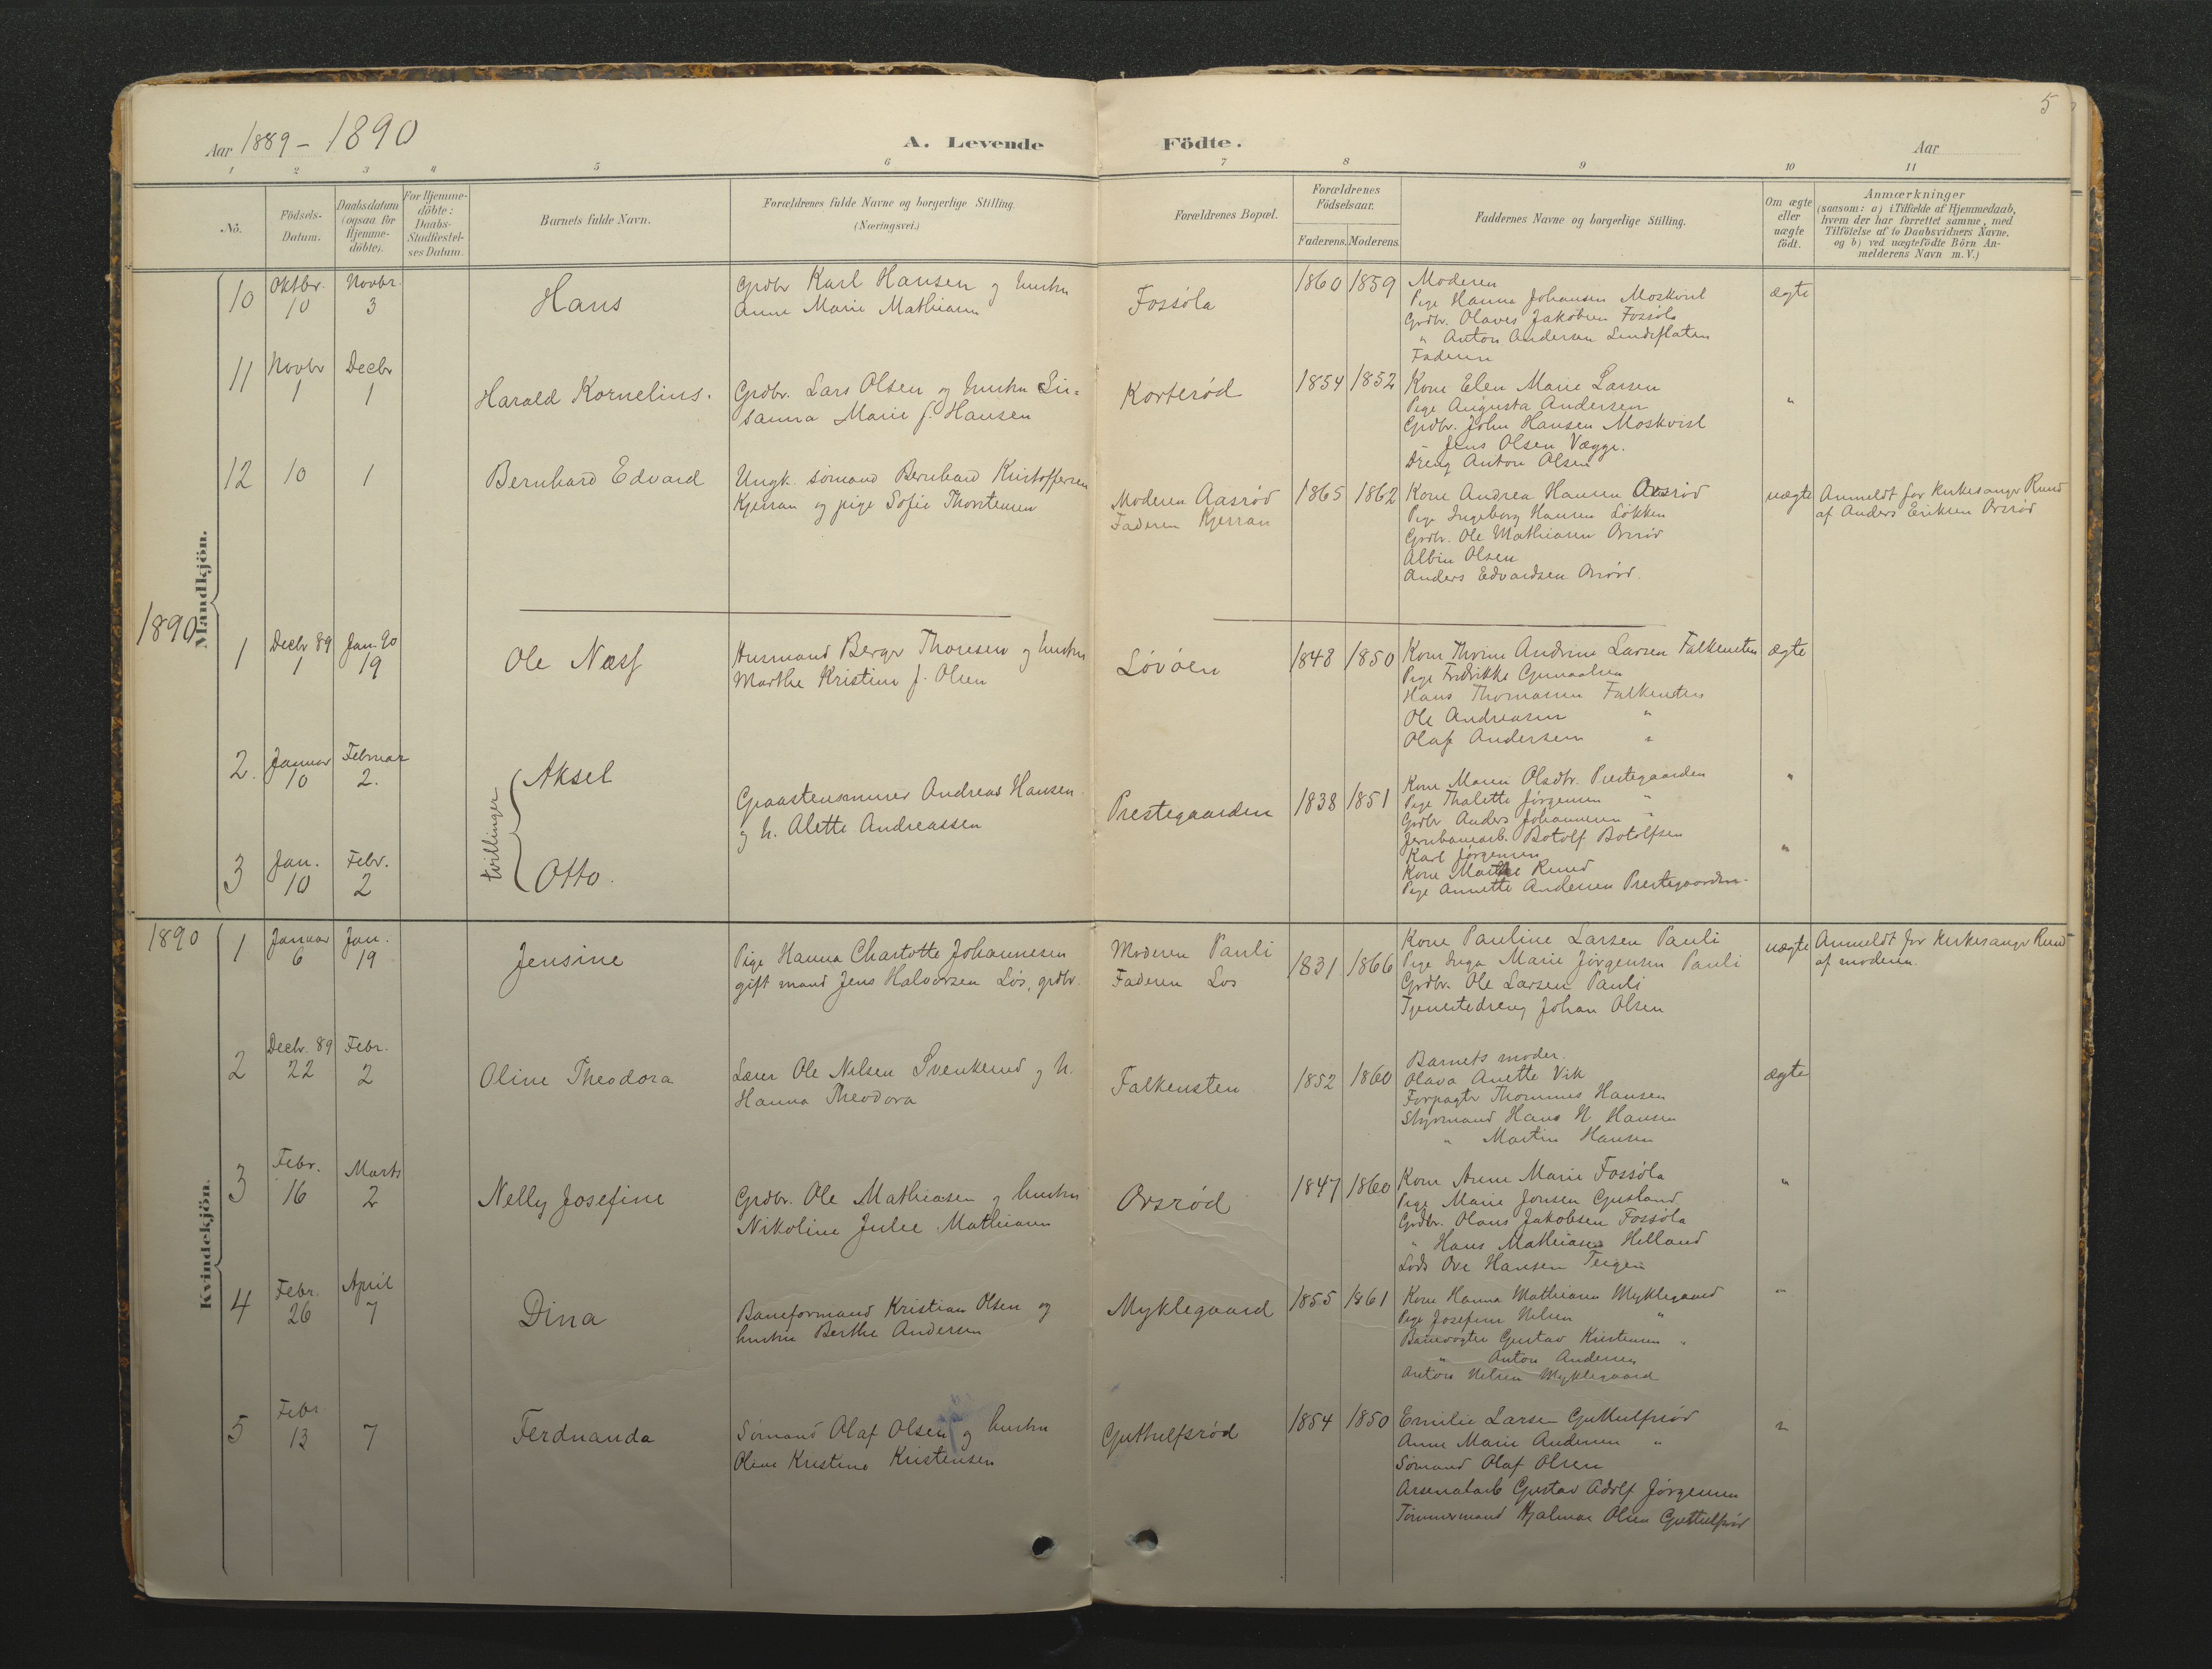 5
Aar 1889 - 1890
A. Levende Födte.
Aar
1 2 3 4 5 6 7 8 9 10 11
No.
Födsels-Datum.
Daabsdatum (ogsaa for Hjemme-döbte).
For Hjemme-döbte: Daabs-Stadfæstel-ses Datum.
Barnets fulde Navn.
Forældrenes fulde Navne og borgerlige Stilling.
(Næringsvei.)
Forældrenes Bopæl.
Forældrenes Födselsaar.
Faderens. Moderens.
Faddernes Navne og borgerlige Stilling.
Om ægte eller uægte födt.
Anmærkninger
(saasom: a) i Tilfælde af Hjemmedaab,
hvem der har forrettet samme, med
Tilföielse af to Daabsvidners Navne,
og b) ved uægtefödte Börn An-
melderens Navn m. V.)
Mandkjön.
10 Oktbr. 10 Novbr. 3 Hans
Grdbr Karl Hansen og hustru
Anne Marie Mathiasen
Fossöla 1860 1859
Moderen
Pige Hanna Johansen Moskvist
Grdbr. Olaves Jakobsen Fossöla
" Anton Andersen Lindeflaten
Faderen
ægte
11 Novbr 1 Decbr 1 Harald Kornelius.
Grdbr. Lars Olsen og hustru Su=
sanna Marie f. Hansen
Korterød 1854 1852
Kone Elen Marie Larsen
Pige Augusta Andersen
Grdbr. John Hansen Moskvist
- Jens Olsen Vægge.
Dreng Anton Olsen
"
12 10 1 Bernhard Edvard
Ungk. sömand Bernhard Kristoffersen
Kjerran og pige Sofie Thorstensen
Moderen Aasröd
Faderen Kjerran
1865 1862
Kone Andrea Hansen Orsröd
Pige Ingeborg Hansen Lökken
Grdbr. Ole Mathiasen Orsröd
Albin Olsen
Anders Edvardsen Orsröd.
uægte
Anmeldt for kirkesanger Ruud
af Anders Eriksen Orsröd
1890
1 Decbr 89 1 Jan. 90 19 Ole Næss
Husmand Berger Thoresen og hustru
Marthe Kristine f. Olsen
Lövöen 1848 1850
Kone Thrine Andrine Larsen Falkensten
Pige Fredrikke Gunnalsen
Hans Thomassen Falkensten
Ole Andreasen "
Olaf Andersen "
ægte
2. Januar 10 Februar 2. Aksel
tvillinger
3 Jan. 10 Febr. 2 Otto.
Graastensminer Andreas Hansen
og h. Alette Andreassen
Prestegaarden 1838 1851
Kone Maren Olsdtr. Prestegaarden
Pige Thalette Jörgensen "
Grdbr Anders Johannesen "
Jernbanearb. Botolf Botolfsen
Karl Jörgensen
Kone Marthe Ruud
Pige Annette Andersen Prestegaarden.
"
"
1890
Kvindekjön.
1 Januar 6 Jan. 19 Jensine
Pige Hanna Charlotte Johannesen
gift mand Jens Halvorsen Lös, grdbr.
Moderen Pauli
Faderen Los
1831 1866
Kone Pauline Larsen Pauli
Pige Inga Marie Jörgensen Pauli
Grdbr. Ole Larsen Pauli
Tjenestedreng Johan Olsen
uægte
Anmeldt for kirkesanger Ruud
af moderen.
2 Decbr. 89 22 Febr. 2 Oline Theodora
Lærer Ole Nilsen Svenkerud og h.
Hanna Theodora
Falkensten 1852 1860
Barnets moder.
Olava Anette Vik
Forpagter Thommes Hansen
Styrmand Hans N. Hansen
" Martin Hansen
ægte
3 Febr. 16 Marts 2 Nelly Josefine
Grdbr. Ole Mathiasen og hustru
Nikoline Julie Mathiasen
Orsröd 1847 1860
Kone Anne Marie Fossöla
Pige Marie Jonsen Gusland
Grdbr. Olaus Jakobsen Fossöla
" Hans Mathiasen Helland
Lods Ove Hansen Teigen
"
4 Febr. 26 April 7 Dina
Baneformand Kristian Olsen og
hustru Berthe Andersen
Myklegaard 1855 1861
Kone Hanna Mathiasen Myklegaard
Pige Josefine Nilsen "
Banevogter Gustav Kristensen "
" Anton Andersen
Anton Nilsen Myklegaard
"
5 Febr 13 7 Ferdnanda
Sömand Olaf Olsen og hustru
Oline Kristine Kristensen
Guthulfsröd 1854 1850
Emilie Larsen Guttulfsröd
Anne Marie Andersen "
Sömand Olaf Olsen
Arsenalarb Gustav Adolf Jörgensen
Tömmermand Hjalmar Olsen Guttulfsröd
"